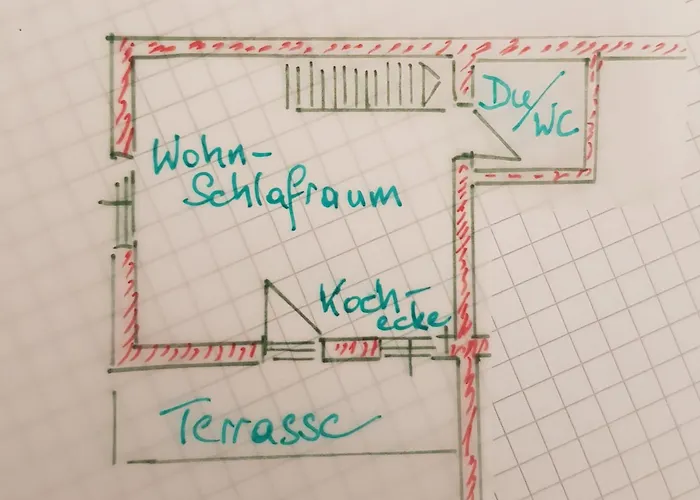 Du/WC
Wohn-
Schlafraum
Koch-
ecke
Terrasse